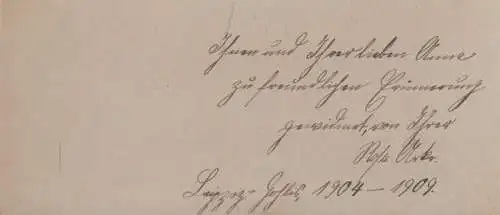 Ihnen und Ihrer lieben Anna
zu freundlichen Erinnerung
gewidmet, von Ihrer
Rosa
Leipzig - Gohlis, 1904 – 1909.